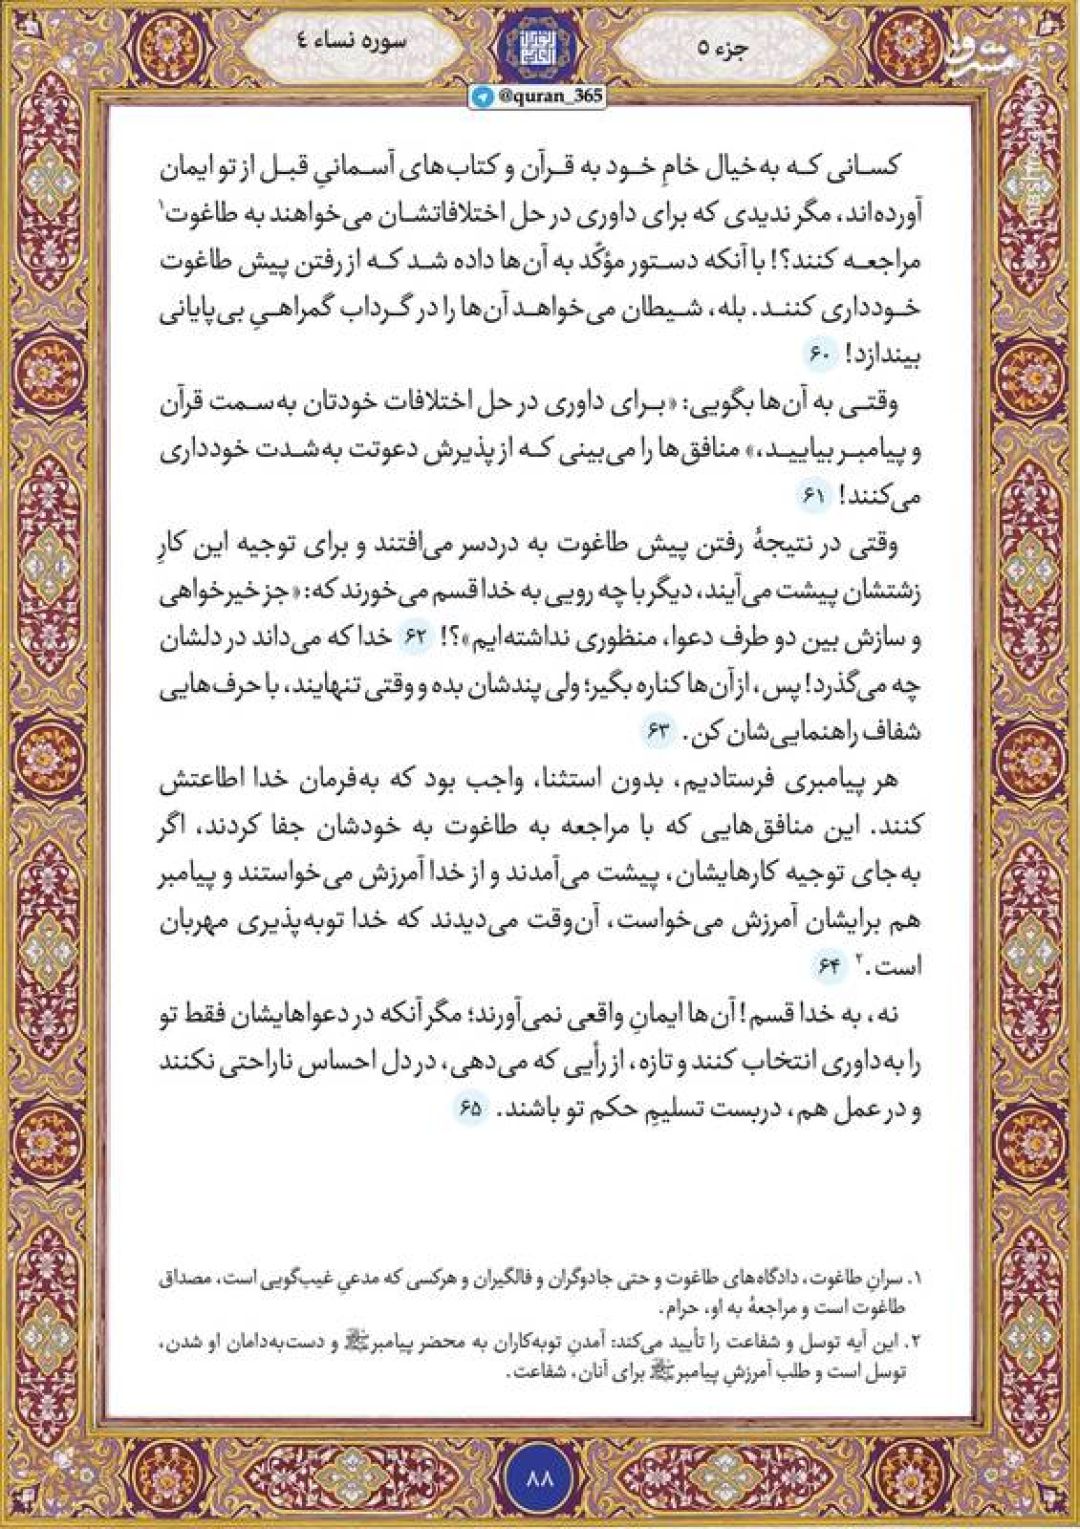 جزء ۵
سوره نساء ٤
مشرق
mashreghnews.ir
@quran_365
کسانی که به‌خیال خامِ خود به قرآن و کتاب‌های آسمانیِ قبل از تو ایمان
آورده‌اند، مگر ندیدی که برای داوری در حل اختلافاتشان می‌خواهند به طاغوت۱
مراجعه کنند؟! با آنکه دستور مؤکّد به آن‌ها داده شد که از رفتن پیش طاغوت
خودداری کنند. بله، شیطان می‌خواهد آن‌ها را در گرداب گمراهیِ بی‌پایانی
بیندازد! ۶۰
وقتی به آن‌ها بگویی: «برای داوری در حل اختلافات خودتان به‌سمت قرآن
و پیامبر بیایید،» منافق‌ها را می‌بینی که از پذیرش دعوتت به‌شدت خودداری
می‌کنند! ۶۱
وقتی در نتیجهٔ رفتن پیش طاغوت به دردسر می‌افتند و برای توجیه این کارِ
زشتشان پیشت می‌آیند، دیگر با چه رویی به خدا قسم می‌خورند که: «جز خیرخواهی
و سازش بین دو طرف دعوا، منظوری نداشته‌ایم»؟! ۶۲ خدا که می‌داند در دلشان
چه می‌گذرد! پس، از آن‌ها کناره بگیر؛ ولی پندشان بده و وقتی تنهایند، با حرف‌هایی
شفاف راهنمایی‌شان کن. ۶۳
هر پیامبری فرستادیم، بدون استثنا، واجب بود که به‌فرمان خدا اطاعتش
کنند. این منافق‌هایی که با مراجعه به طاغوت به خودشان جفا کردند، اگر
به‌جای توجیه کارهایشان، پیشت می‌آمدند و از خدا آمرزش می‌خواستند و پیامبر
هم برایشان آمرزش می‌خواست، آن‌وقت می‌دیدند که خدا توبه‌پذیری مهربان
است.۲ ۶۴
نه، به خدا قسم! آن‌ها ایمانِ واقعی نمی‌آورند؛ مگر آنکه در دعواهایشان فقط تو
را به‌داوری انتخاب کنند و تازه، از رأیی که می‌دهی، در دل احساس ناراحتی نکنند
و در عمل هم، دربست تسلیمِ حکم تو باشند. ۶۵
۱. سرانِ طاغوت، دادگاه‌های طاغوت و حتی جادوگران و فالگیران و هرکسی که مدعیِ غیب‌گویی است، مصداق
طاغوت است و مراجعهٔ به او، حرام.
۲. این آیه توسل و شفاعت را تأیید می‌کند: آمدنِ توبه‌کاران به محضر پیامبرﷺ و دست‌به‌دامان او شدن،
توسل است و طلب آمرزشِ پیامبرﷺ برای آنان، شفاعت.
۸۸